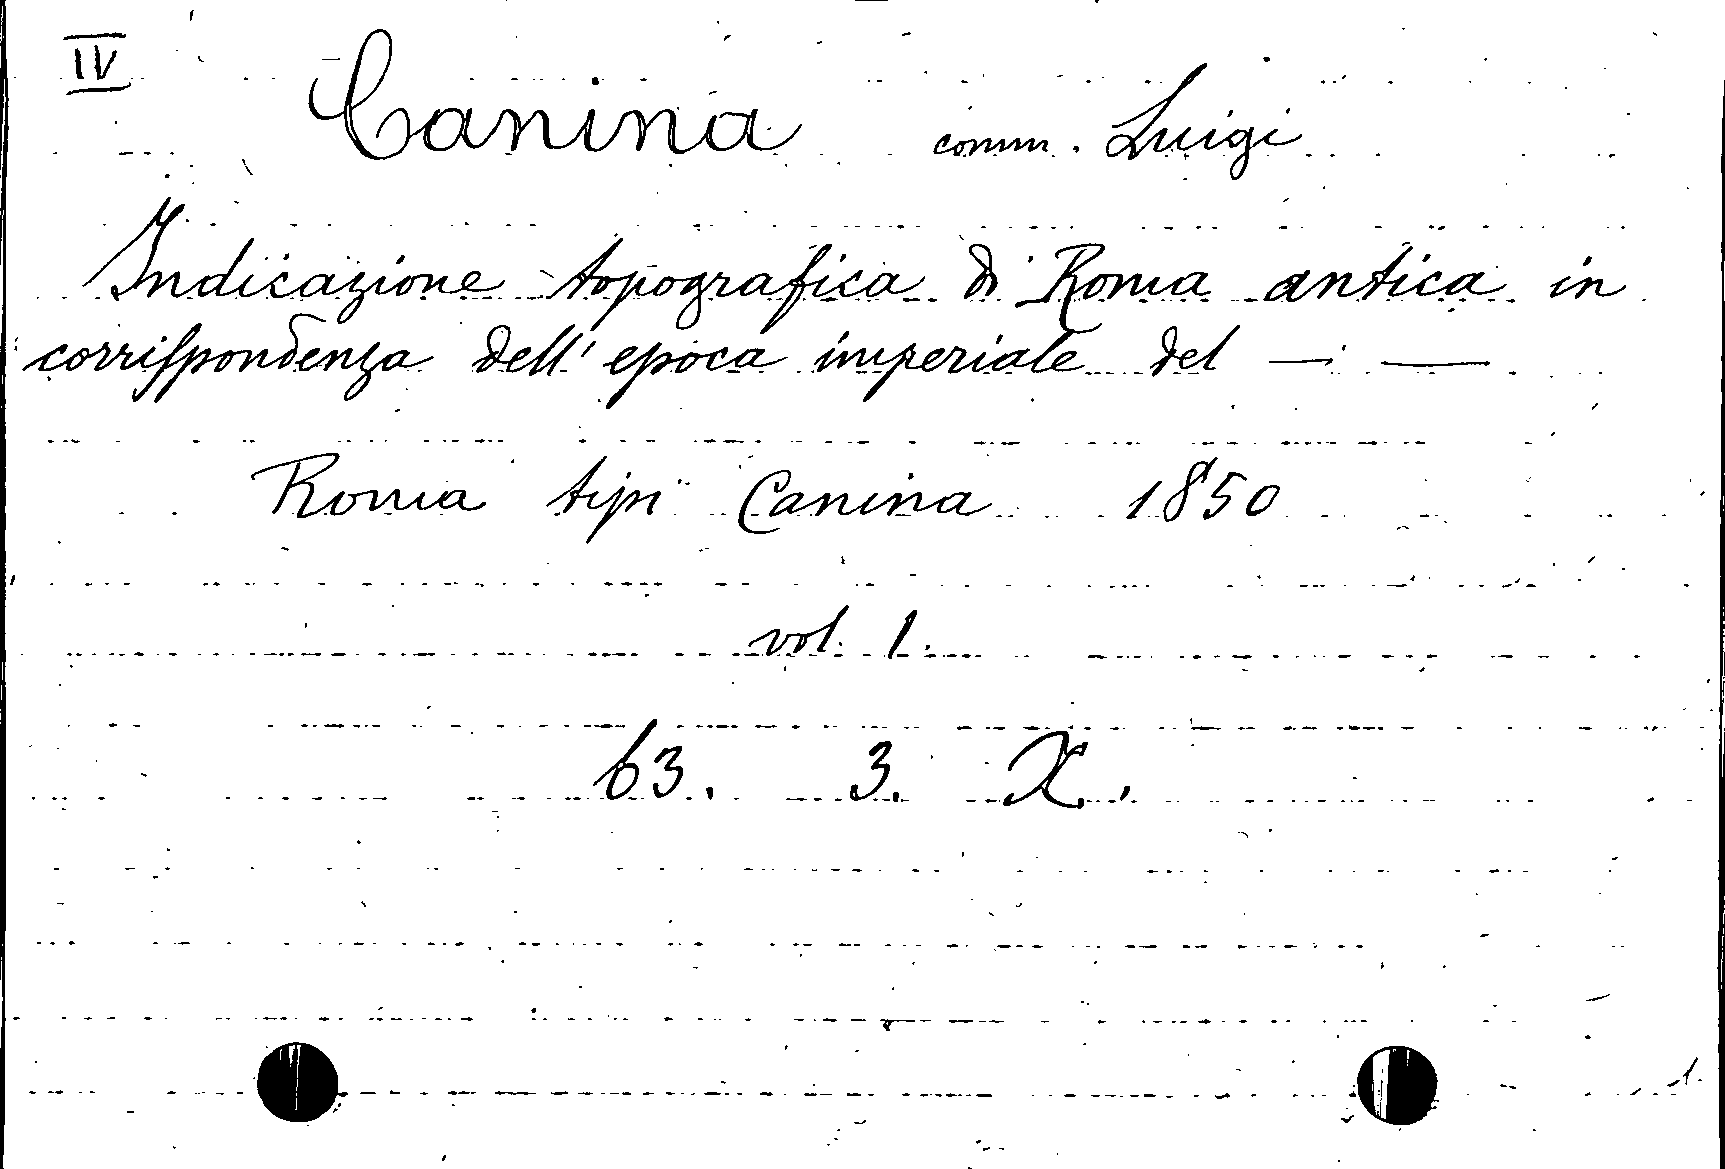 IV
Canina comm. Luigi
Indicazione topografica di Roma antica in
corrispondenza dell' epoca imperiale del — —
Roma tipi Canina 1850
vol. 1.
63. 3. X.